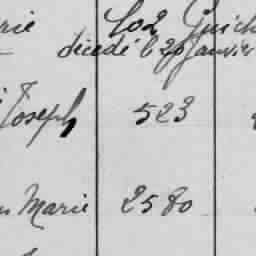 rie 602 Guich
décedé l 20 Janvier
Joseph 523
Marie 2580